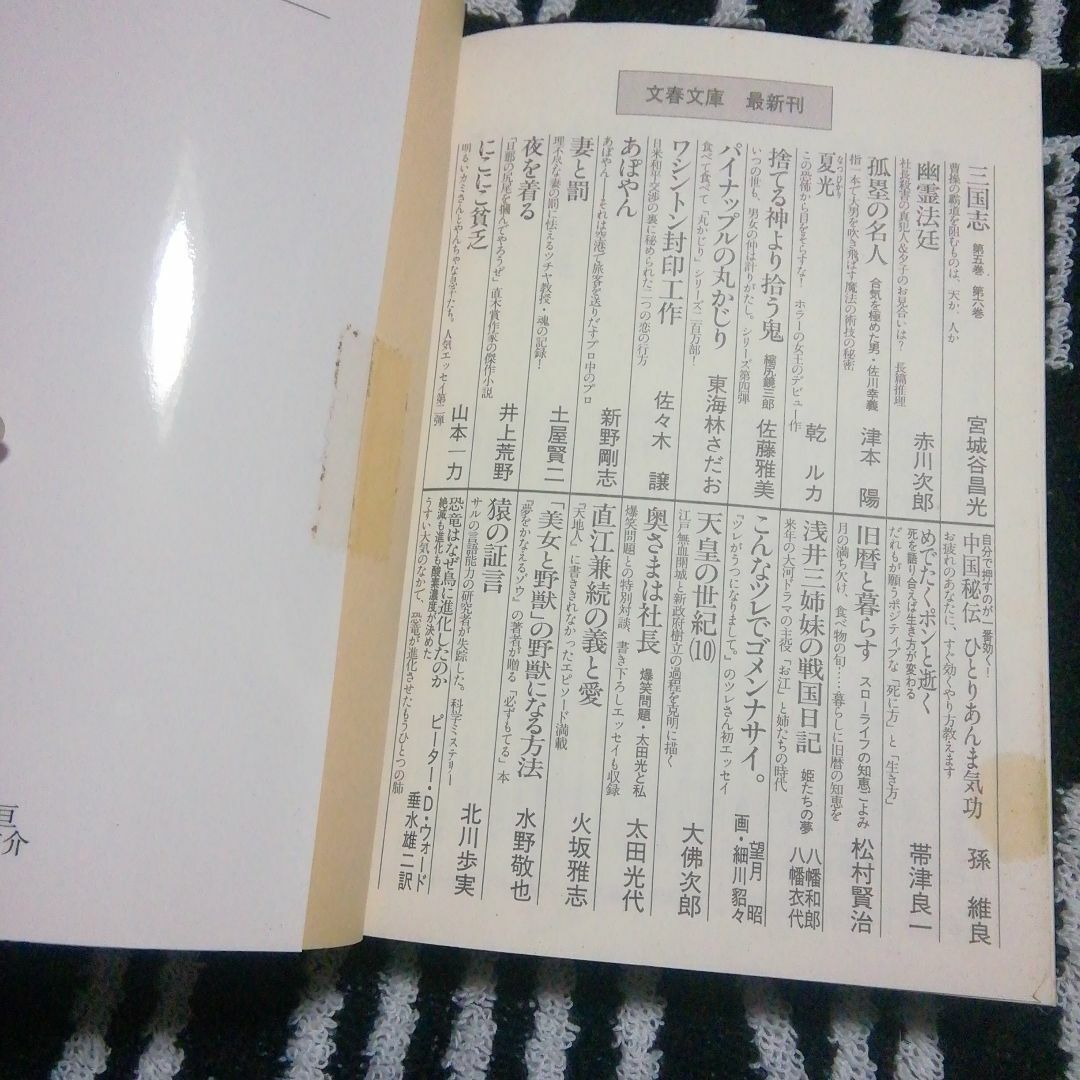 文春文庫 最新刊
三国志 第五巻 第六巻
曹操の覇道を阻むものは、天か、人か
宮城谷昌光
幽霊法廷
社長殺害の真犯人&夕子のお見合いは? 長篇推理
赤川次郎
孤塁の名人 合気を極めた男・佐川幸義
指一本で大男を吹き飛ばす魔法の術技の秘密
津本 陽
夏光
なつひかり
この恐怖から目をそらすな! ホラーの女王のデビュー作
乾 ルカ
捨てる神より拾う鬼 縮尻鏡三郎
いつの世も、男女の仲は計りがたし。シリーズ第四弾
佐藤雅美
パイナップルの丸かじり
食べて食べて「丸かじり」シリーズ二百万部!
東海林さだお
ワシントン封印工作
日米和平交渉の裏に秘められた二つの恋の行方
佐々木 譲
あぽやん
あぽやん――それは空港で旅客を送りだすプロ中のプロ
新野剛志
妻と罰
理不尽な妻の罰に怯えるツチヤ教授・魂の記録!
土屋賢二
夜を着る
「旦那の尻尾を摑んでやろうぜ」直木賞作家の傑作小説
井上荒野
にこにこ貧乏
明るいカミさんとやんちゃな息子たち。人気エッセイ第二弾
山本一力
自分で押すのが一番効く!
中国秘伝 ひとりあんま気功
お疲れのあなたに、すぐ効くやり方教えます
孫 維良
めでたくポンと逝く
死を語り合えば生き方が変わる
だれもが願うポジティブな「死に方」と「生き方」
帯津良一
旧暦と暮らす スローライフの知恵ごよみ
月の満ち欠け、食べ物の旬……暮らしに旧暦の知恵を
松村賢治
浅井三姉妹の戦国日記 姫たちの夢
来年の大河ドラマの主役「お江」と姉たちの時代
八幡和郎
八幡衣代
こんなツレでゴメンナサイ。
『ツレがうつになりまして。』のツレさん初エッセイ
望月 昭
画・細川貂々
天皇の世紀(10)
江戸無血開城と新政府樹立の過程を克明に描く
大佛次郎
奥さまは社長 爆笑問題・太田光と私
爆笑問題との特別対談、書き下ろしエッセイも収録
太田光代
直江兼続の義と愛
『天地人』に書ききれなかったエピソード満載
火坂雅志
「美女と野獣」の野獣になる方法
『夢をかなえるゾウ』の著者が贈る「必ずもてる」本
水野敬也
猿の証言
サルの言語能力の研究者が失踪した。科学ミステリー
北川歩実
恐竜はなぜ鳥に進化したのか
絶滅も進化も酸素濃度が決めた
うすい大気のなかで、恐竜が進化させたもうひとつの肺
ピーター・D・ウォード
垂水雄二訳
介